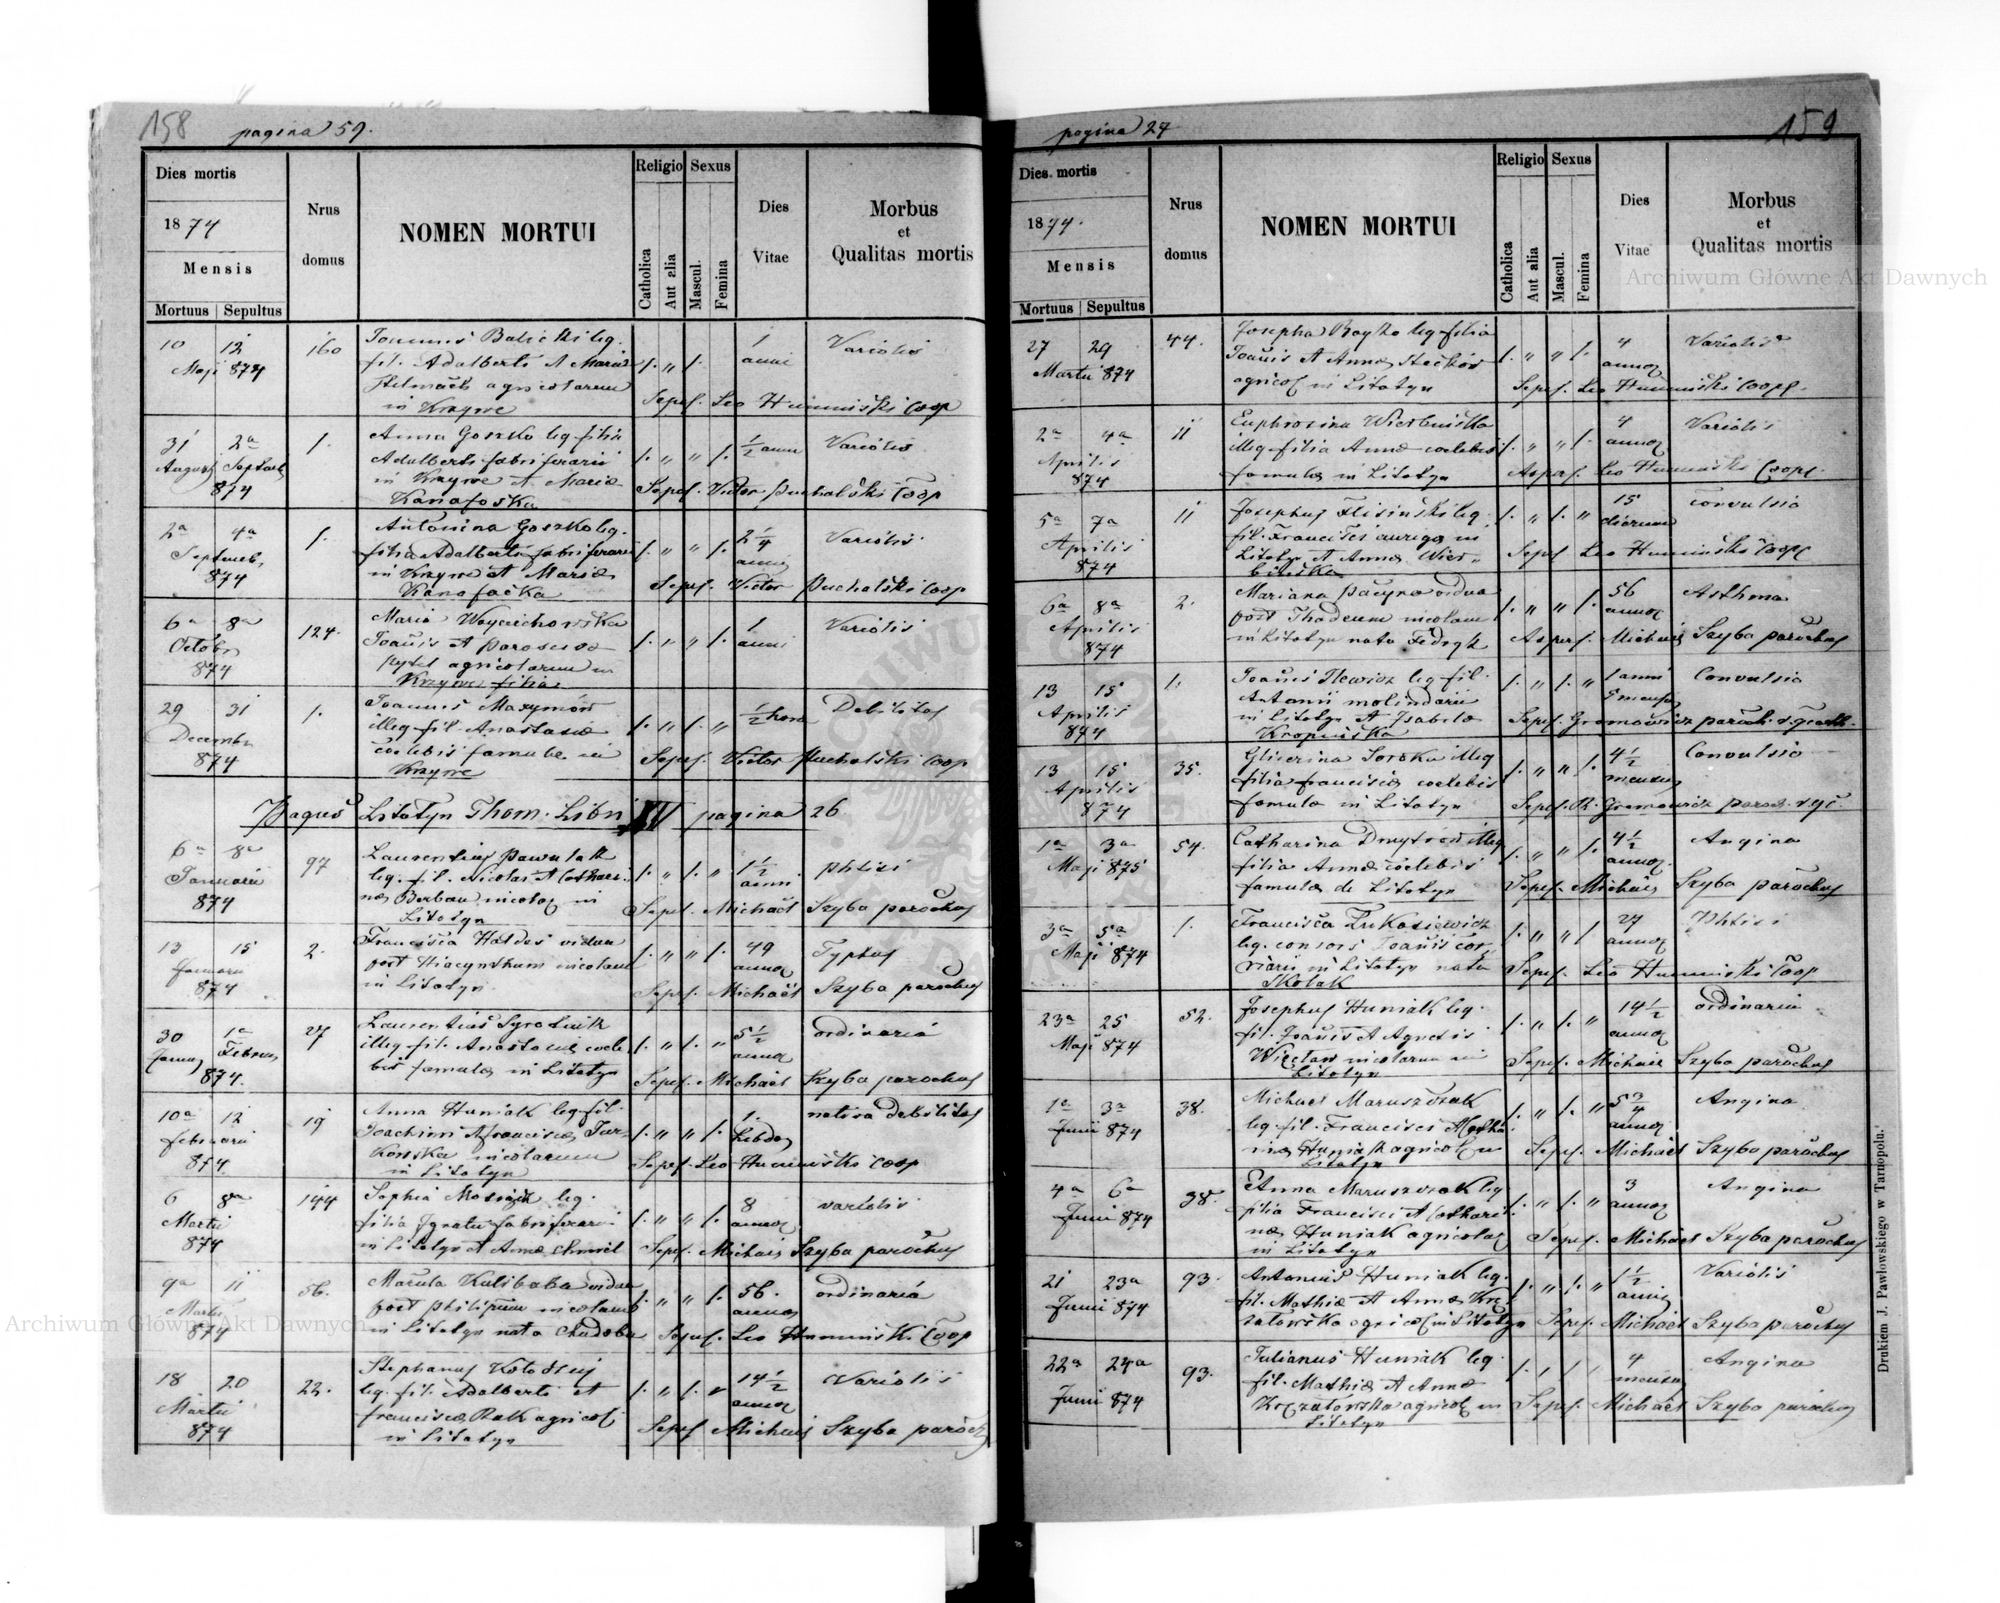 158
pagina 59.
Dies mortis
1874
Mensis
Mortuus Sepultus
Nrus
domus
NOMEN MORTUI
Religio
Catholica
Aut alia
Sexus
Mascul.
Femina
Dies
Vitae
Morbus
et
Qualitas mortis
10 12
Maji 874
160
Joannes Balicki leg.
fil. Adalberti et Mariæ
agricolarum
in Krzywe
1 anni
Variolis
Sepel. Leo Humiński Coop
31 2a
August Septemb
874
1.
Anna Goszko leg. filia
Adalberti fabri ferarii
in Krzywe et Mariæ
1/2 anni
Variolis
Sepel. Victor Puchalski Coop
2a 4a
Septemb.
874
1.
Antonina Goszko leg.
filia Adalberti fabri ferarii
in Krzywe et Mariæ
2 1/4
Variolis
Sepel. Victor Puchalski Coop
6a 8a
Octobr
874
124.
Maria Woyciechowska
Joanis et
agricolarum in
Krzywe filia
1
anni
Variolis
29 31
Decembr
874
1.
Joannes Maxymów
illeg. fil. Anastasiæ
cœlebis famulæ in
Krzywe
1/2 hora
Debilitas
Sepel. Victor Puchalski Coop
Pagus Litatyn Thom. Libri XV pagina 26.
6a 8a
Januarii
874
97
Laurentius Pawulak
leg. fil. Nicolai et Cathari-
næ in
Litatyn
1 1/2
anni
phtisi
Sepel. Michael Szyba parochus
13 15
Januarii
874
2.
Francisca Haldes vidua
post Hiacynthum incolam
in Litatyn
49
annor
Typhus
Sepel. Michael Szyba parochus
30 1a
Januar Februar
874.
27
Laurentius Syrotiuk
illeg. fil. Anastasiæ cœle
bis famulæ in Litatyn
5 1/2
annor
ordinaria
Sepel. Michael Szyba parochus
10a 12
februarii
874
19
Anna Huniak leg. fil.
Joachimi et Franciscæ Tur-
in Litatyn
1.
hebdo
nativa debilitas
Sepel. Leo Humiński Coop
6 8a
Martii
874
144
Sophia leg.
filia Ignatii fabri ferarii
in Litatyn et Annæ Chmiel
8
annor
variolis
Sepel. Michael Szyba parochus
9a 11
Martii
874
56.
Kulibaba vidua
post Philippum incolam
in Litatyn nata Chudoba
56.
annor
ordinaria
Sepel. Leo Humiński Coop
18 20
Martii
874
22.
Stephanus Kołodziej
leg. fil. Adalberti et
Franciscæ Rak agricol
in Litatyn
14 1/2
annor
Variolis
Sepel. Michael Szyba paroch
159
pagina 27
Dies mortis
1874.
Mensis
Mortuus Sepultus
Nrus
domus
NOMEN MORTUI
Religio
Catholica
Aut alia
Sexus
Mascul.
Femina
Dies
Vitae
Morbus
et
Qualitas mortis
27 29
Martii 874
44.
Josepha Boyko leg. filia
Joanis et Annæ
agricol in Litatyn
4
annor
Variolis
Sepel. Leo Humiński Coope.
2a 4a
Aprilis
874
11
Euphrosina Wierbińska
illeg filia Annæ cœlebis
famulæ in Litatyn
4
annor
Variolis
Aspers. Leo Humiński Coope.
5a 7a
Aprilis
874
11
Josephus leg.
fil. Francisci aurigæ in
Litatyn et Annæ Wier-
bińska
15
dierum
Convulsio
Sepel Leo Humiński Coope
6a 8a
Aprilis
874
2.
Mariana vidua
post Thadeum incolam
in Litatyn nata
56
annor
Asthma
Aspers. Michael Szyba parochus
13 15
Aprilis
874
1.
Joanes Ilewicz leg. fil.
Antonii molindarii
in Litatyn et Isabelæ
Kropińska
1 anni
5 mensis
Convulsio
13 15
Aprilis
874
35.
Glicerina Soroka illeg
filia Franciscæ cœlebis
famulæ in Litatyn
4 1/2
mensis
Convulsio
1a 3a
Maji 875
54.
Catharina Dmytrów illeg
filia Annæ cœlebis
famulæ de Litatyn
4 1/2
annor.
Angina
Sepel. Michael Szyba parochus
3a 5a
Maji 874
1.
Francisca Łukasiewicz
leg. consors Joanis
in Litatyn nata
Skolak
27
annor
Phtisi
Sepel. Leo Humiński Coop
23a 25
Maji 874
52.
Josephus Huniak leg.
fil. Joanis et Agnetis
Więcław incolarum in
Litatyn
14 1/2
annor
ordinaria
Sepel. Michael Szyba parochus
1a 3a
Junii 874
38.
Michael Maruszczak
leg. fil. Francisci et Catha
rinæ Huniak agricol in
Litatyn
5 3/4
annor
Angina
Sepel. Michael Szyba parochus
4a 6a
Junii 874
38.
Anna Maruszczak leg
filia Francisci et Cathari
næ Huniak agricolar
in Litatyn
3
annor
Angina
Sepel. Michael Szyba parochus
21 23a
Junii 874
93.
Antonius Huniak leg.
fil. Mathiæ et Annæ Krę
załowska agricol in Litatyn
1 1/2
annis
Variolis
Sepel. Michael Szyba parochus
22a 24a
Junii 874
93.
Julianus Huniak leg.
fil. Mathiæ et Annæ
agricol in
Litatyn
4
mensis
Angina
Sepel. Michael Szyba parochus
Drukiem J. Pawłowskiego w Tarnopolu.
Archiwum Główne Akt Dawnych
Archiwum Główne Akt Dawnych